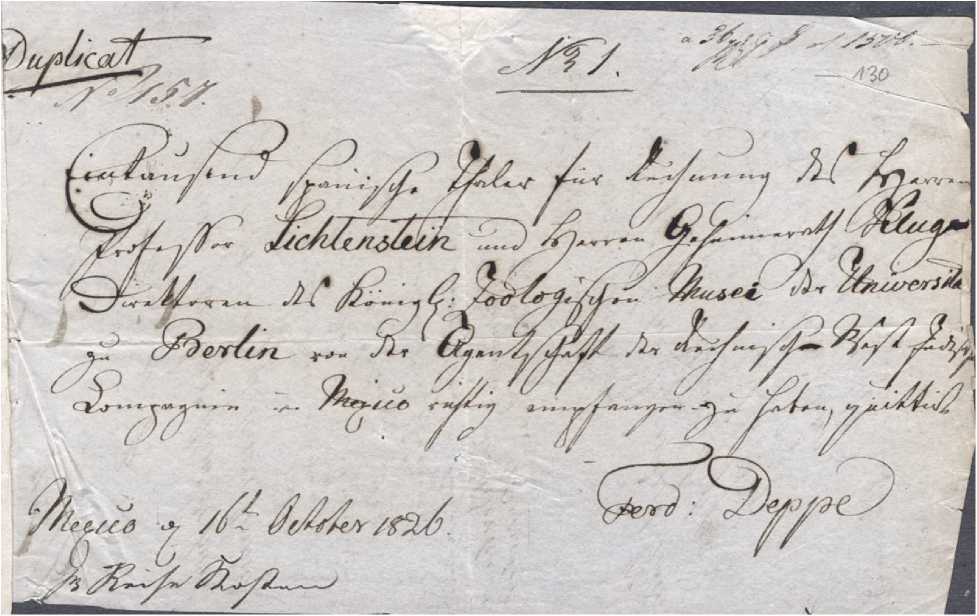 Duplicat
No 1.
130
No 157.
Eintausend spanische Thaler für Rechnung des Herren
Professor Lichtenstein und Herren Geheimerath Kluge
Direktoren des Königl: Zoologischen Musei der Universitä
zu Berlin von der Agentschaft der Rheinisch West Indisch
Compagnie in Mexico richtig empfangen zu haben, quittirt
Ferd: Deppe
Mexico 16t October 1826.
Reise Kosten